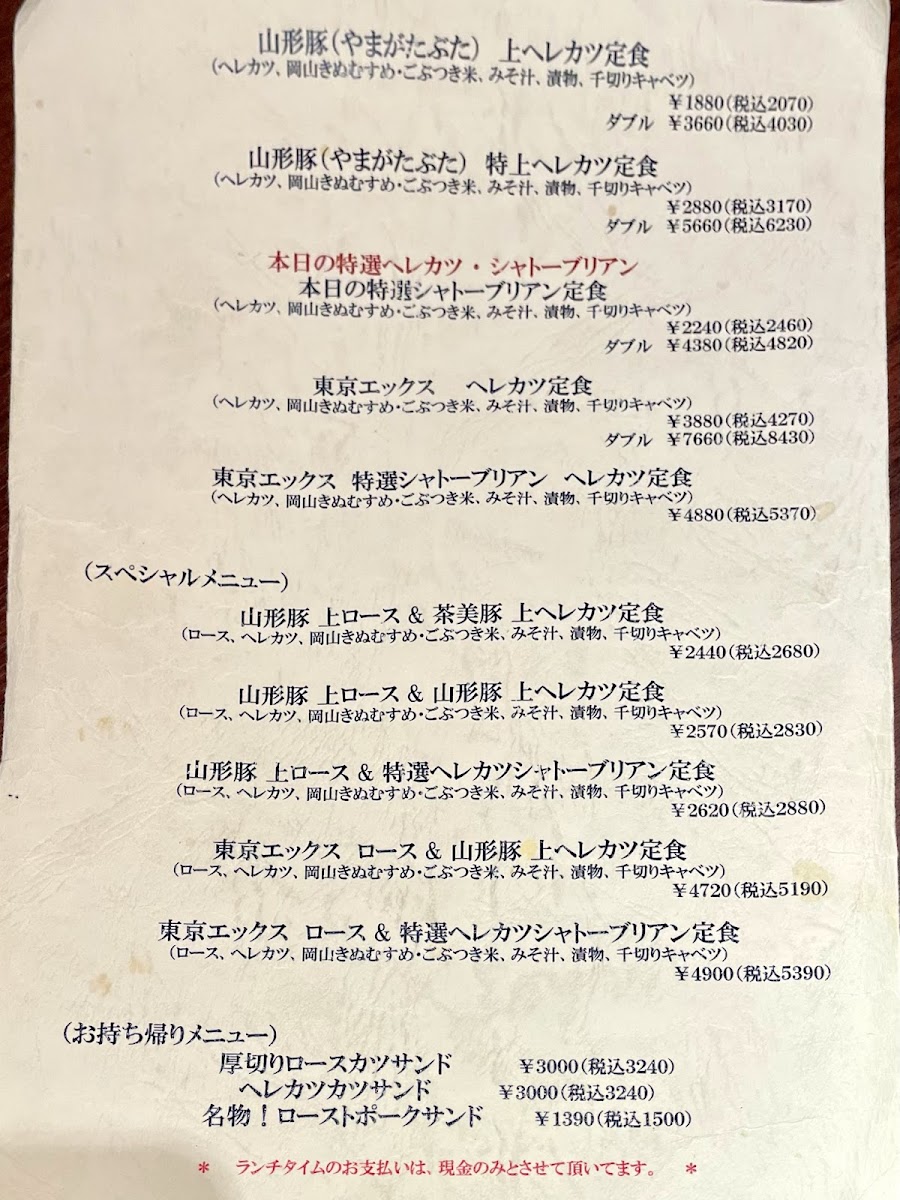 山形豚(やまがたぶた) 上ヘレカツ定食
(ヘレカツ、岡山きぬむすめ・ごぶつき米、みそ汁、漬物、千切りキャベツ)
￥1880(税込2070)
ダブル ￥3660(税込4030)
山形豚(やまがたぶた) 特上ヘレカツ定食
(ヘレカツ、岡山きぬむすめ・ごぶつき米、みそ汁、漬物、千切りキャベツ)
￥2880(税込3170)
ダブル ￥5660(税込6230)
本日の特選ヘレカツ・シャトーブリアン
本日の特選シャトーブリアン定食
(ヘレカツ、岡山きぬむすめ・ごぶつき米、みそ汁、漬物、千切りキャベツ)
￥2240(税込2460)
ダブル ￥4380(税込4820)
東京エックス ヘレカツ定食
(ヘレカツ、岡山きぬむすめ・ごぶつき米、みそ汁、漬物、千切りキャベツ)
￥3880(税込4270)
ダブル ￥7660(税込8430)
東京エックス 特選シャトーブリアン ヘレカツ定食
(ヘレカツ、岡山きぬむすめ・ごぶつき米、みそ汁、漬物、千切りキャベツ)
￥4880(税込5370)
(スペシャルメニュー)
山形豚 上ロース & 茶美豚 上ヘレカツ定食
(ロース、ヘレカツ、岡山きぬむすめ・ごぶつき米、みそ汁、漬物、千切りキャベツ)
￥2440(税込2680)
山形豚 上ロース & 山形豚 上ヘレカツ定食
(ロース、ヘレカツ、岡山きぬむすめ・ごぶつき米、みそ汁、漬物、千切りキャベツ)
￥2570(税込2830)
山形豚 上ロース & 特選ヘレカツシャトーブリアン定食
(ロース、ヘレカツ、岡山きぬむすめ・ごぶつき米、みそ汁、漬物、千切りキャベツ)
￥2620(税込2880)
東京エックス ロース & 山形豚 上ヘレカツ定食
(ロース、ヘレカツ、岡山きぬむすめ・ごぶつき米、みそ汁、漬物、千切りキャベツ)
￥4720(税込5190)
東京エックス ロース & 特選ヘレカツシャトーブリアン定食
(ロース、ヘレカツ、岡山きぬむすめ・ごぶつき米、みそ汁、漬物、千切りキャベツ)
￥4900(税込5390)
(お持ち帰りメニュー)
厚切りロースカツサンド ￥3000(税込3240)
ヘレカツカツサンド ￥3000(税込3240)
名物！ローストポークサンド ￥1390(税込1500)
＊ ランチタイムのお支払いは、現金のみとさせて頂いてます。 ＊